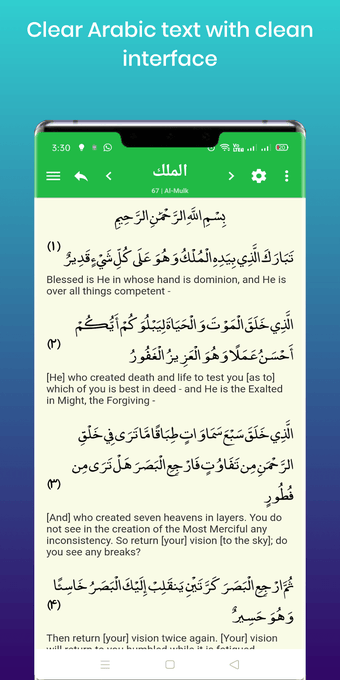 Clear Arabic text with clean
interface
3:30
الملك
67 | Al-Mulk
بِسْمِ اللَّهِ الرَّحْمَٰنِ الرَّحِيمِ
تَبَارَكَ الَّذِي بِيَدِهِ الْمُلْكُ وَهُوَ عَلَى كُلِّ شَيْءٍ قَدِيرٌ (١)
Blessed is He in whose hand is dominion, and He is
over all things competent -
الَّذِي خَلَقَ الْمَوْتَ وَالْحَيَاةَ لِيَبْلُوَكُمْ أَيُّكُمْ
أَحْسَنُ عَمَلًا وَهُوَ الْعَزِيزُ الْغَفُورُ (٢)
[He] who created death and life to test you [as to]
which of you is best in deed - and He is the Exalted
in Might, the Forgiving -
الَّذِي خَلَقَ سَبْعَ سَمَاوَاتٍ طِبَاقًا مَّا تَرَى فِي خَلْقِ
الرَّحْمَنِ مِن تَفَاوُتٍ فَارْجِعِ الْبَصَرَ هَلْ تَرَى مِن
فُطُورٍ (٣)
[And] who created seven heavens in layers. You do
not see in the creation of the Most Merciful any
inconsistency. So return [your] vision [to the sky]; do
you see any breaks?
ثُمَّ ارْجِعِ الْبَصَرَ كَرَّتَيْنِ يَنقَلِبْ إِلَيْكَ الْبَصَرُ خَاسِئًا
وَهُوَ حَسِيرٌ (۴)
Then return [your] vision twice again. [Your] vision
will return to you humbled while it is fatigued